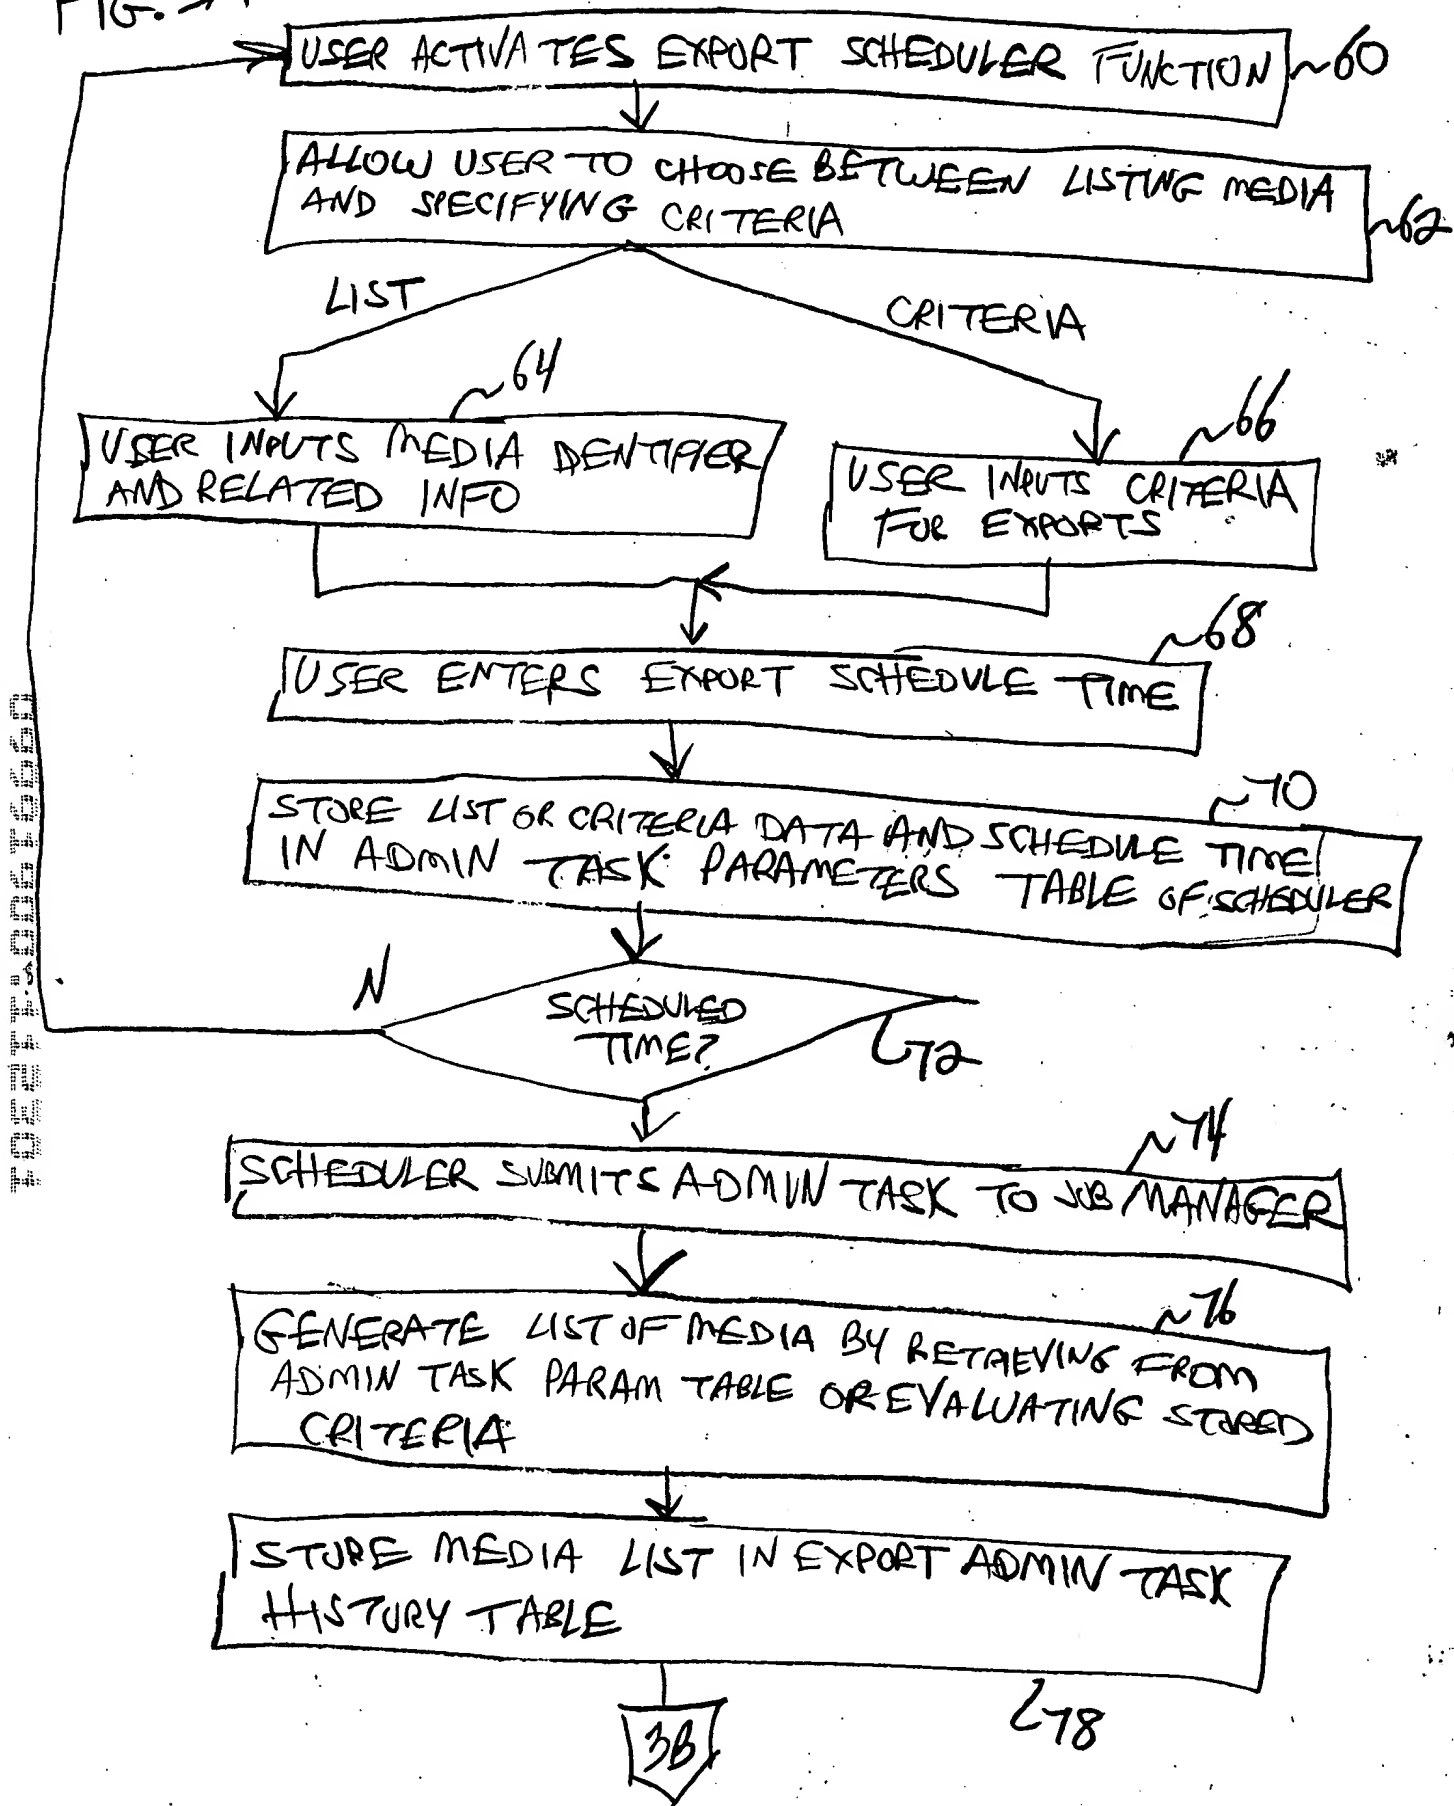 FIG.
USER ACTIVATES EXPORT SCHEDULER FUNCTION
60
ALLOW USER TO CHOOSE BETWEEN LISTING MEDIA
AND SPECIFYING CRITERIA
62
LIST
CRITERIA
64
66
USER INPUTS MEDIA IDENTIFIER
AND RELATED INFO
USER INPUTS CRITERIA
FOR EXPORTS
68
USER ENTERS EXPORT SCHEDULE TIME
70
STORE LIST OR CRITERIA DATA AND SCHEDULE TIME
IN ADMIN TASK PARAMETERS TABLE OF SCHEDULER
N
SCHEDULED
TIME?
72
74
SCHEDULER SUBMITS ADMIN TASK TO JOB MANAGER
76
GENERATE LIST OF MEDIA BY RETRIEVING FROM
ADMIN TASK PARAM TABLE OR EVALUATING STORED
CRITERIA
STORE MEDIA LIST IN EXPORT ADMIN TASK
HISTORY TABLE
78
3B